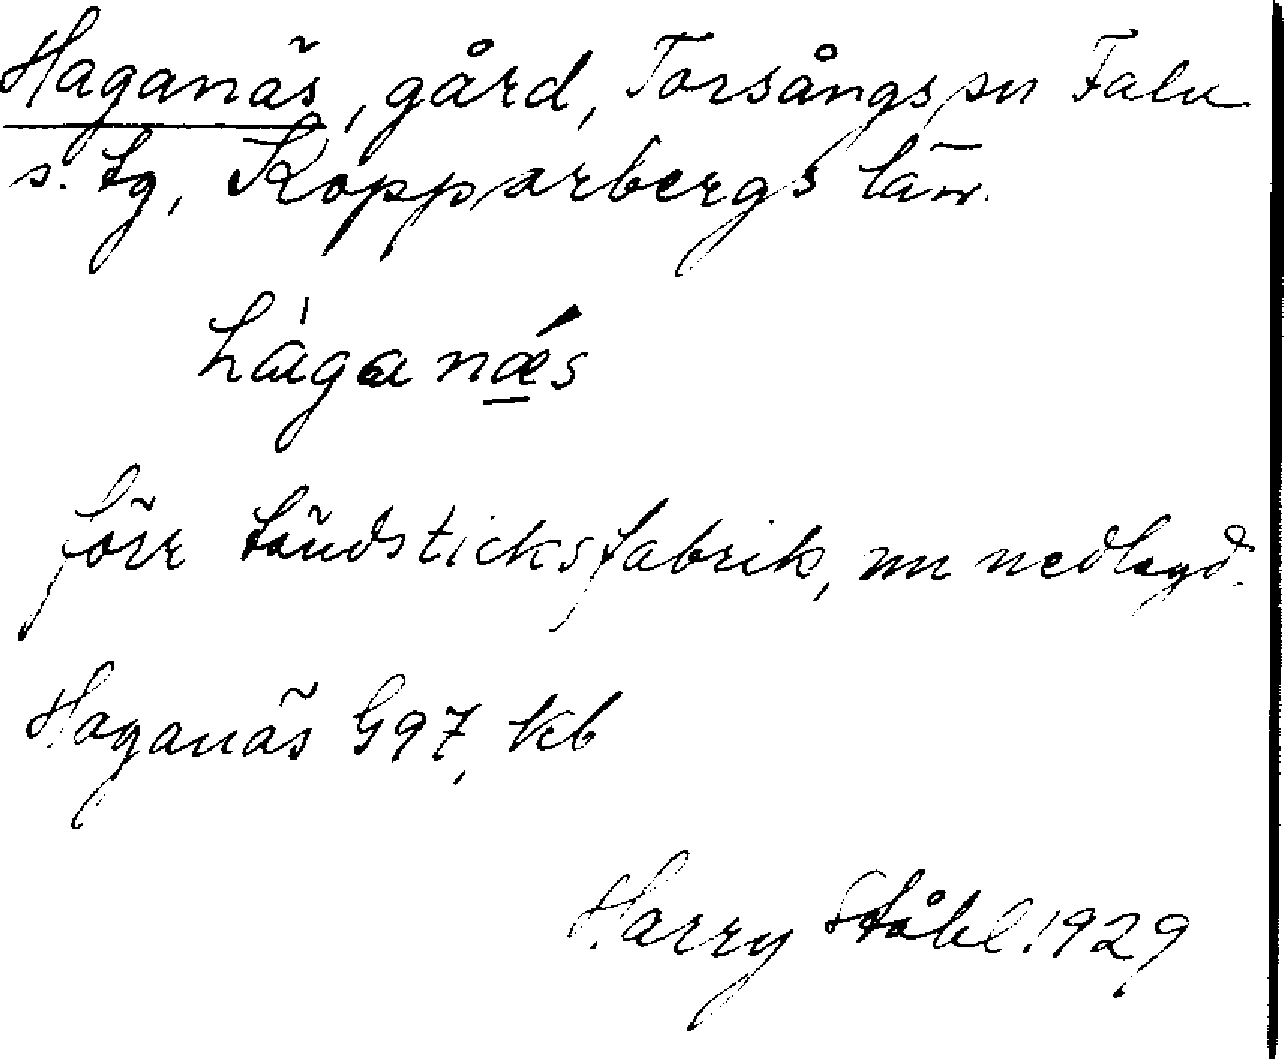 Haganäs, gård, Torsångs sn Falu
s. tg, Kopparbergs län.
hàganǽs
förr tändsticksfabrik, nu nedlagd.
Haganäs G97, kb
Harry Ståhl. 1929